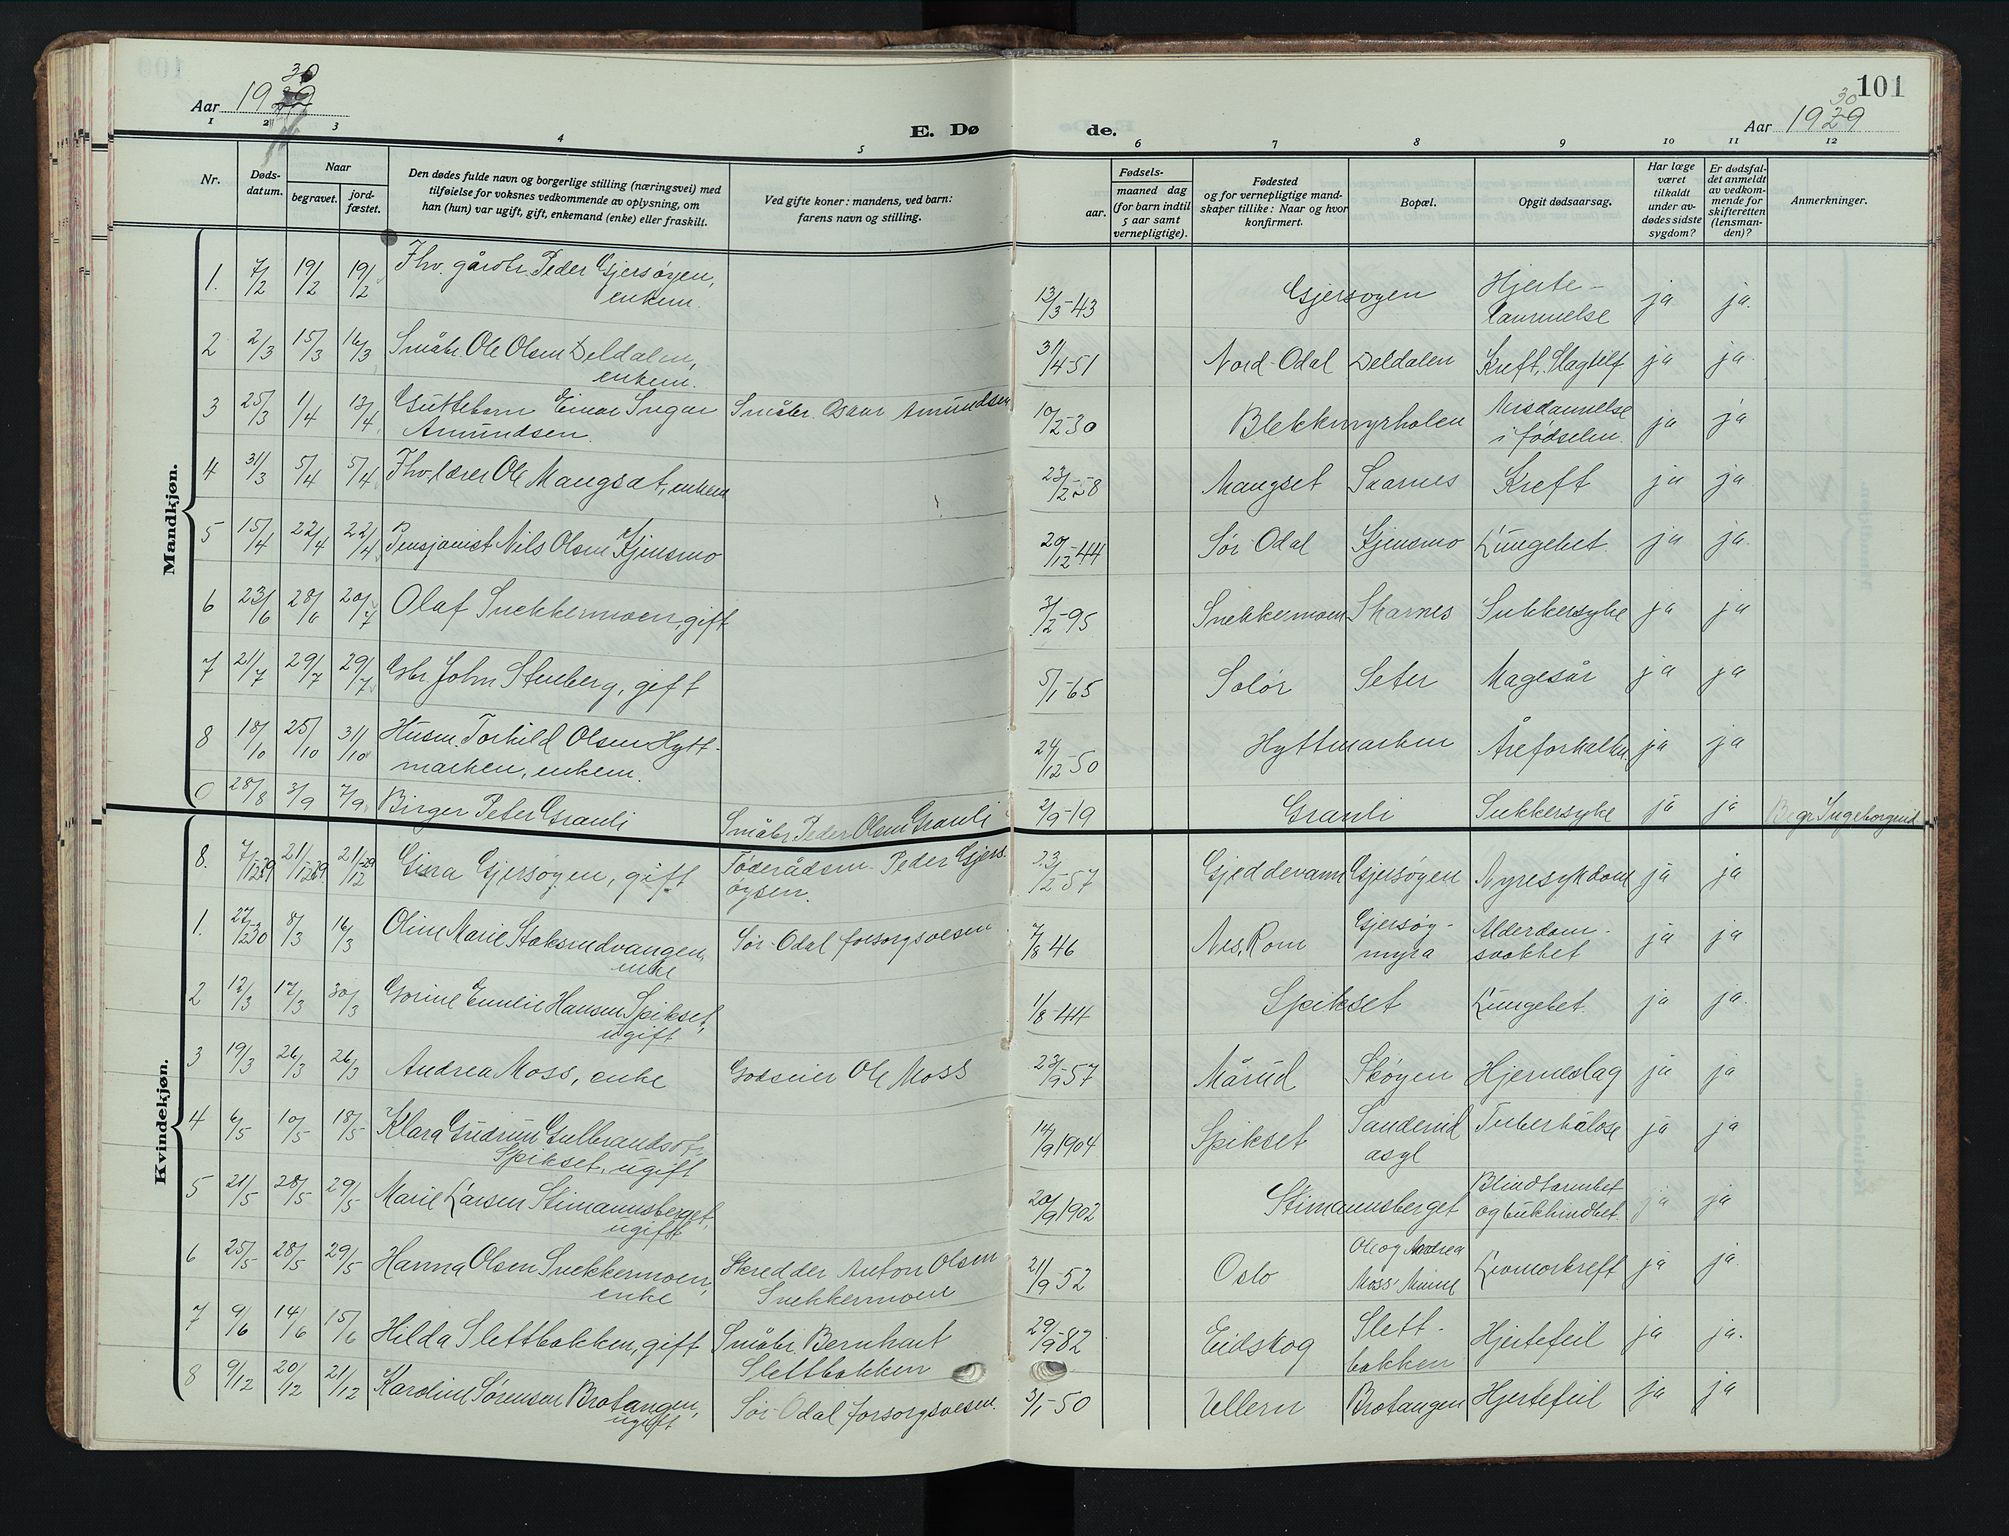 Aar 1929 30
E. Dø
de.
101
Aar 1929 30
1 2 3 4 5 6 7 8 9 10 11 12
Nr.
Døds-
datum.
Naar
begravet.
jord-
fæstet.
Den dødes fulde navn og borgerlige stilling (næringsvei) med
tilføielse for voksnes vedkommende av oplysning, om
han (hun) var ugift, gift, enkemand (enke) eller fraskilt.
Ved gifte koner: mandens, ved barn:
farens navn og stilling.
Fødsels-
aar.
maaned dag
(for barn indtil
5 aar samt
vernepligtige).
Fødested
og for vernepligtige mand-
skaper tillike: Naar og hvor
konfirmert.
Bopæl.
Opgit dødsaarsag.
Har læge
været
tilkaldt
under av-
dødes sidste
sygdom?
Er dødsfal-
det anmeldt
av vedkom-
mende for
skifteretten
(lensman-
den)?
Anmerkninger.
Mandkjøn.
1. 7/2 19/2 19/2 Fhv. gårdbr. Peder Gjersøyen,
enkem. 13/3-43 Gjersøyen Hjerte-
lammelse ja ja.
2 2/3 15/3 16/3 Småbr Ole Olsen Deldalen,
enkem. 31/4-51 Nord-Odal Deldalen Kreft, Slagtilf ja ja.
3 25/3 1/4 13/4 Guttebarn Einar Ingar
Amundsen. Småbr. Oskar Amundsen 10/2-30 Blekkmyrholen Misdannelse
i fødselen. ja ja
4 31/3 5/4 5/4 Fhv. lærer Ole Mangset, enkem 23/12-58 Mangset Skarnes Kreft ja ja.
5 15/4 22/4 22/4 Pensjonist Nils Olsen Gjensmo 20/12-44 Sør-Odal Gjensmo Lungebet. ja ja.
6 23/6 28/6 20/7 Olaf Snekkermoen, gift 3/2-95 Snekkermoen Skarnes Sukkersyke ja ja
7 21/7 29/7 29/7 Gbr John Stenberg, gift 5/1-65 Solør Seter Magesår ja ja
8 18/10 25/10 31/10 Husm. Torkild Olsen Hytt-
marken, enkem. 24/12-50 Hyttmarken Åreforkalkn. ja ja
0 28/8 3/9 7/9 Birger Peter Granli Småbr Peder Olsen Granli 2/9-19 Granli Sukkersyke ja ja Begr. Ingeborgrud
Kvindekjøn.
8. 7/12-29 21/12-29 21/12-29 Gina Gjersøyen, gift Føderådsm. Peder Gjers-
øyen. 23/12-57 Gjeddevann Gjersøyen Nyresykdom ja ja
1. 27/2-30 8/3 16/3 Oline Marie Stoksrudvangen,
enke Sør-Odal forsorgsvesen 7/8 46 Nes, Rom Gjersøy-
myra Alderdom-
svakhet ja ja
2 12/3 17/3 30/3 Gorine Emilie Hansen Spikset,
ugift 1/8-44 Spikset Lungebet. ja ja.
3 19/3 26/3 26/3 Andrea Moss, enke Godseier Ole Moss 23/9-57 Mårud Skøyen Hjerneslag ja ja
4 6/5 10/5 18/5 Klara Gudrun Gulbrandsdtr
Spikset, ugift 14/9 1904 Spikset Sanderud
asyl Tuberkulose ja ja
5 21/5 28/5 29/5 Marie Larsen Stimannsberget,
ugift 20/9 1902 Stimannsberget Blindtarmbet
og bukhindbet. ja ja
6 25/5 28/5 29/5 Hanna Olsen Snekkermoen,
enke Skredder Anton Olsen
Snekkermoen 21/9-52 Oslo Ole og Andrea
Moss' Minne Livmorkreft ja ja.
7 9/6 14/6 15/6 Hilda Slettbakken, gift Småbr. Bernhart
Slettbakken 29/9-82 Eidskog Slett-
bakken Hjertefeil ja ja.
8 9/12 20/12 21/12 Karoline Sørensen Brotangen,
ugift Sør-Odal forsorgsvesen. 3/1-50 Ullern Brotangen Hjertefeil ja ja